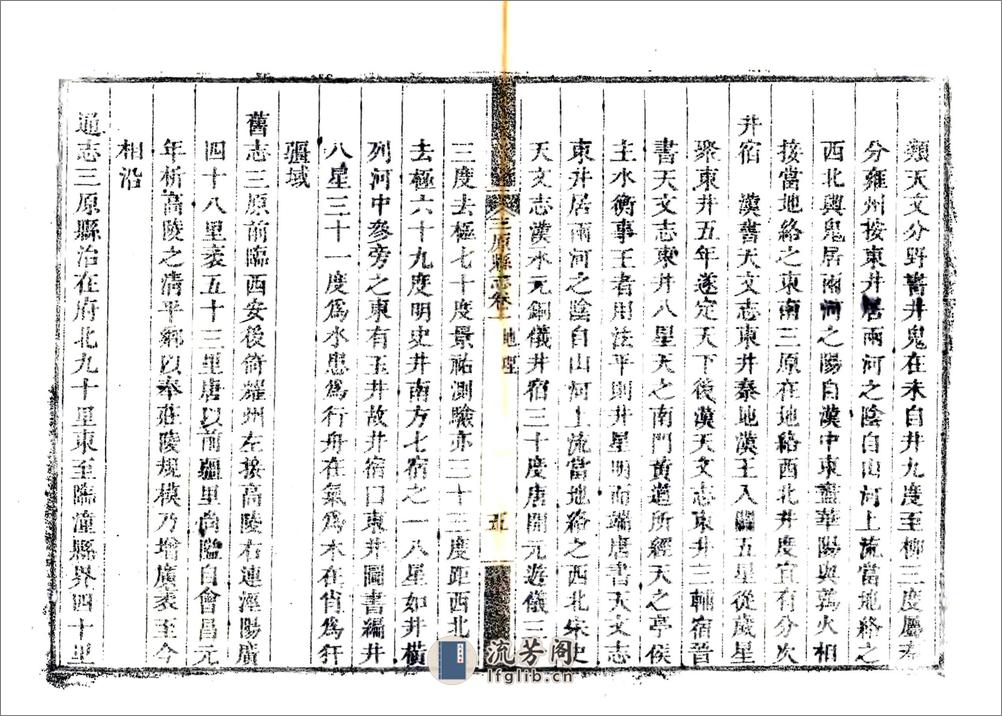 類天文分野書井鬼在未自井九度至柳三度屬秦
分雍州按東井居兩河之陰自山河上流當地絡之
西北輿鬼居兩河之陽自漢中東盡華陽與鶉火相
接當地絡之東南三原在地絡西北井度宜有分次
井宿 漢書天文志東井秦地漢王入關五星從歲星
聚東井五年遂定天下後漢天文志東井三輔宿晉
書天文志東井八星天之南門黃道所經天之亭候
主水衡事王者用法平則井星明而端唐書天文志
東井居兩河之陰自山河上流當地絡之西北宋史
天文志漢永元銅儀井宿三十度唐開元遊儀三十
三原縣志卷 地理
五
三度去極七十度景祐測驗亦三十三度距西北
去極六十九度明史井南方七宿之一八星如井橫
列河中參旁之東有玉井故井宿曰東井圖書編井
八星三十一度爲水患爲行舟在氣爲木在肖爲犴
疆域
舊志三原前臨西安後倚耀州左接高陵右連涇陽廣
四十八里袤五十三里唐以前疆里尚隘自會昌元
年析高陵之清平鄉以奉莊陵規模乃增廣袤至今
相沿
通志三原縣治在府北九十里東至臨潼縣界四十里
流芳阁
lfglib.cn